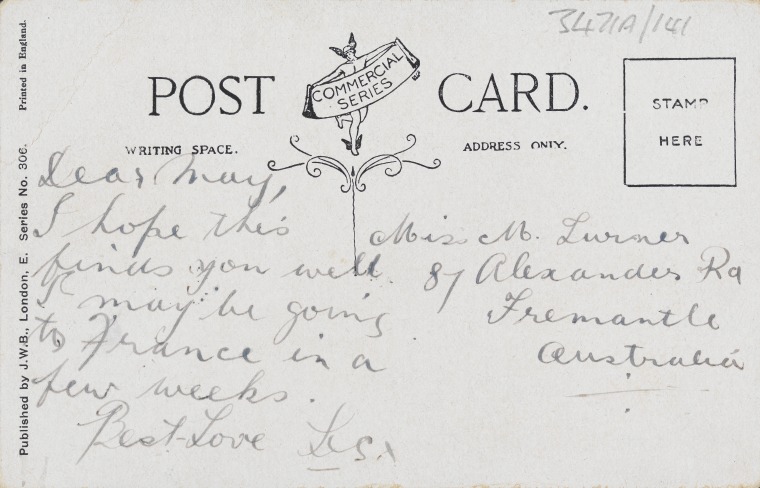 3471A/141
POST CARD.
COMMERCIAL
SERIES
STAMP
HERE
WRITING SPACE.
ADDRESS ONLY.
Dear May,
I hope this
finds you well.
I may be going
to France in a
few weeks.
Best Love Les. x
Miss M. Turner
87 Alexander Rd
Fremantle
Australia
Published by J.W.B., London, E. Series No. 306. Printed in England.